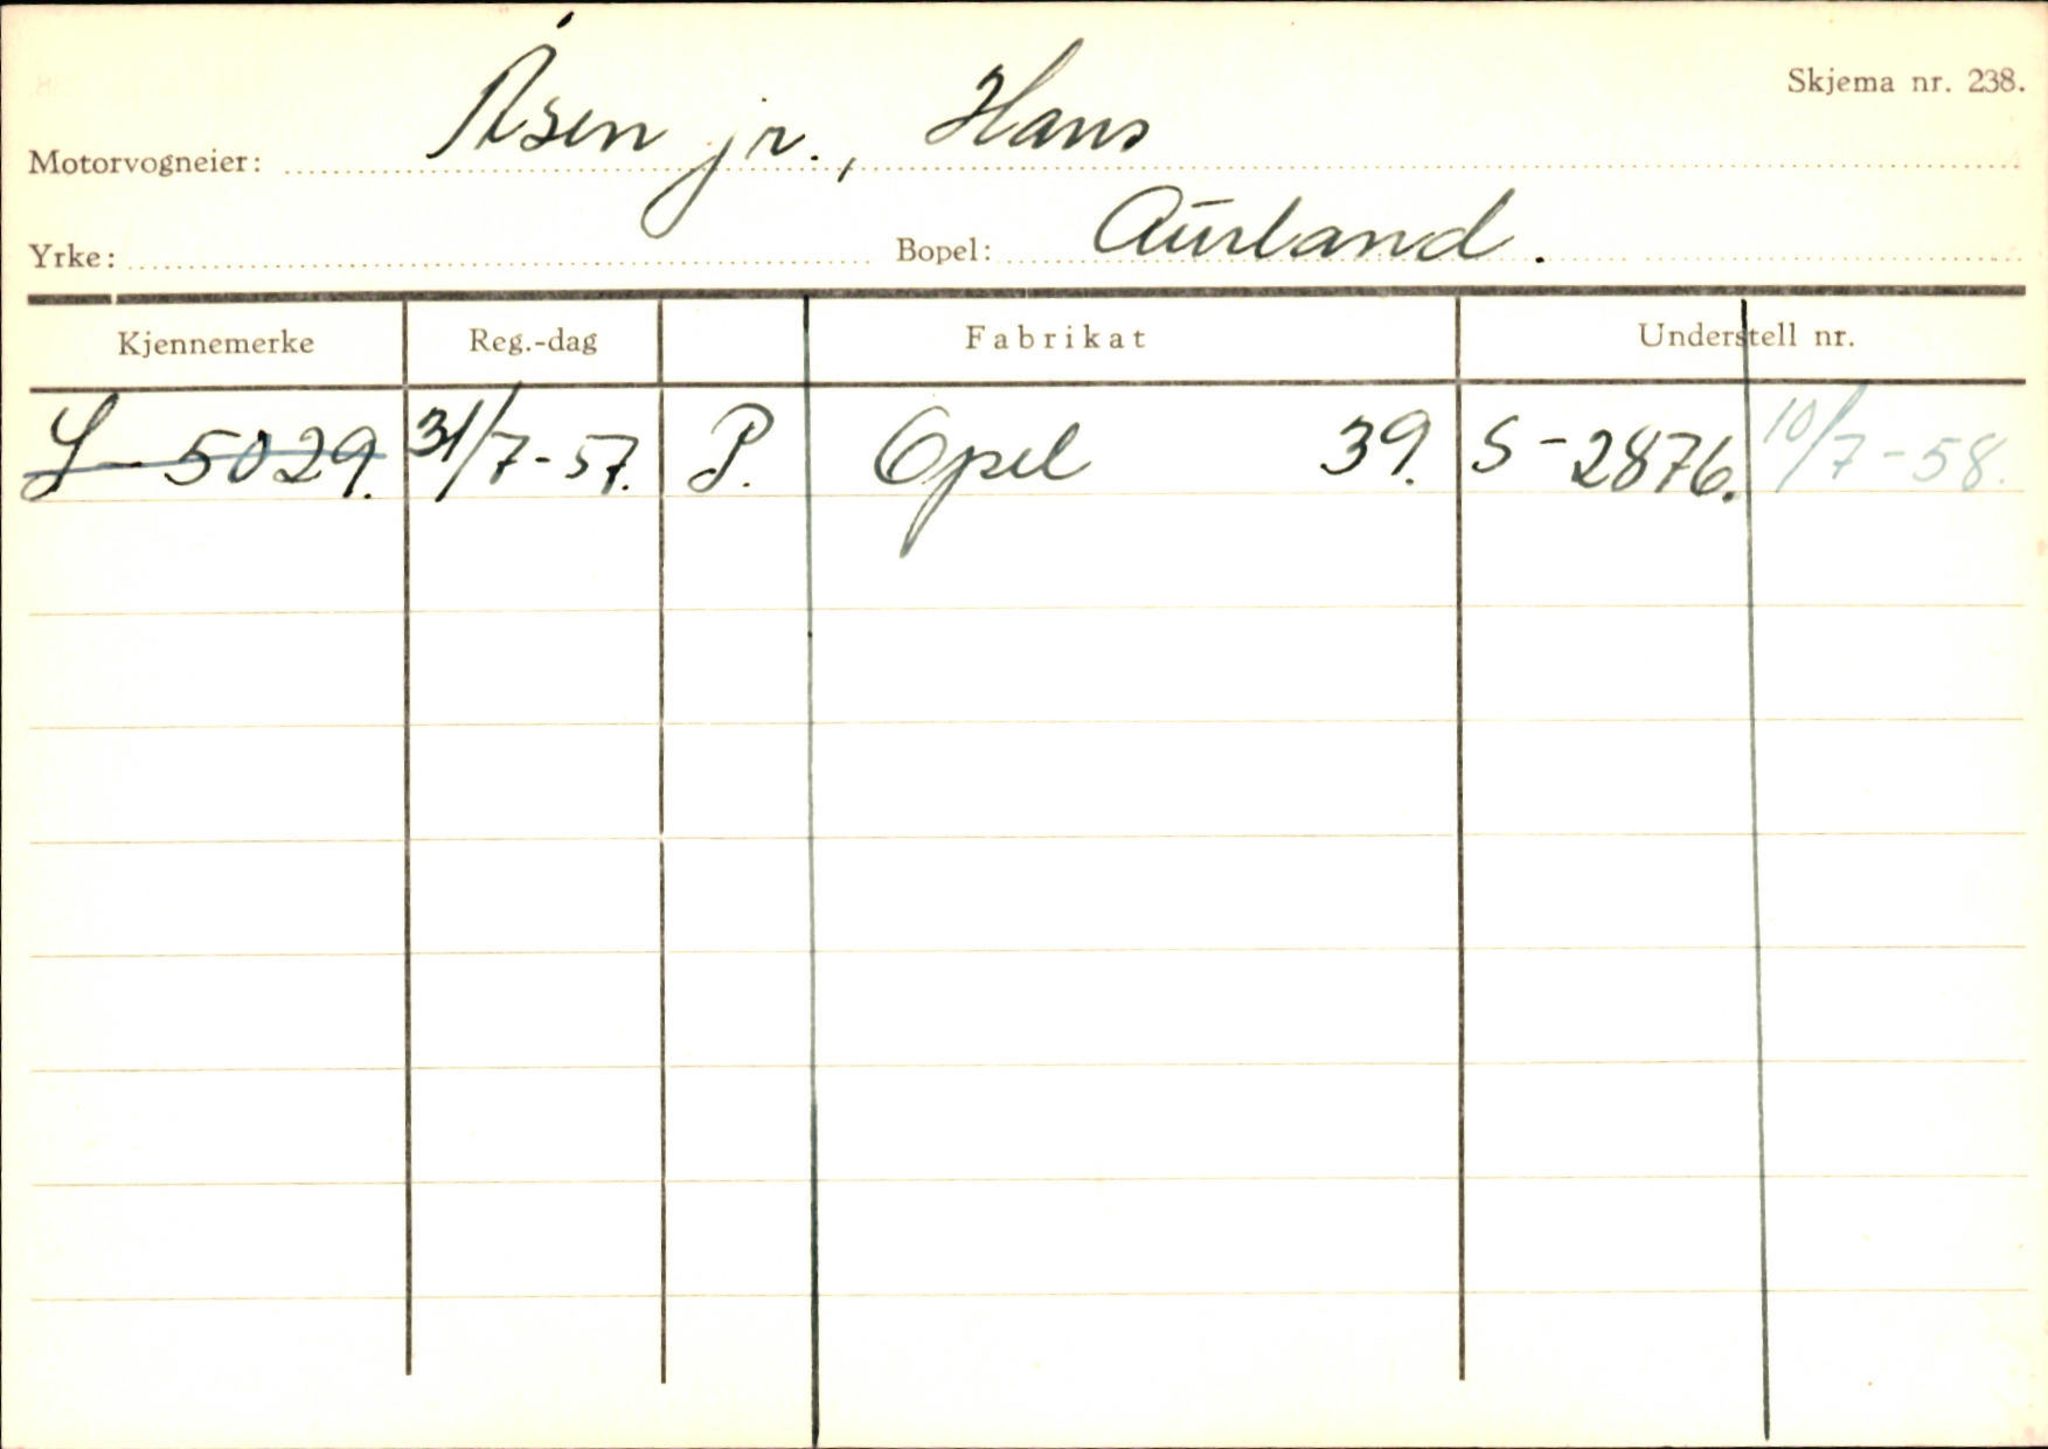 Skjema nr. 238.
Motorvogneier: Åsen jr., Hans
Yrke: Bopel: Aurland.
Kjennemerke Reg.-dag Fabrikat Understell nr.
S-5029. 31/7-57. P. Opel 39. S-2876. 10/7-58.